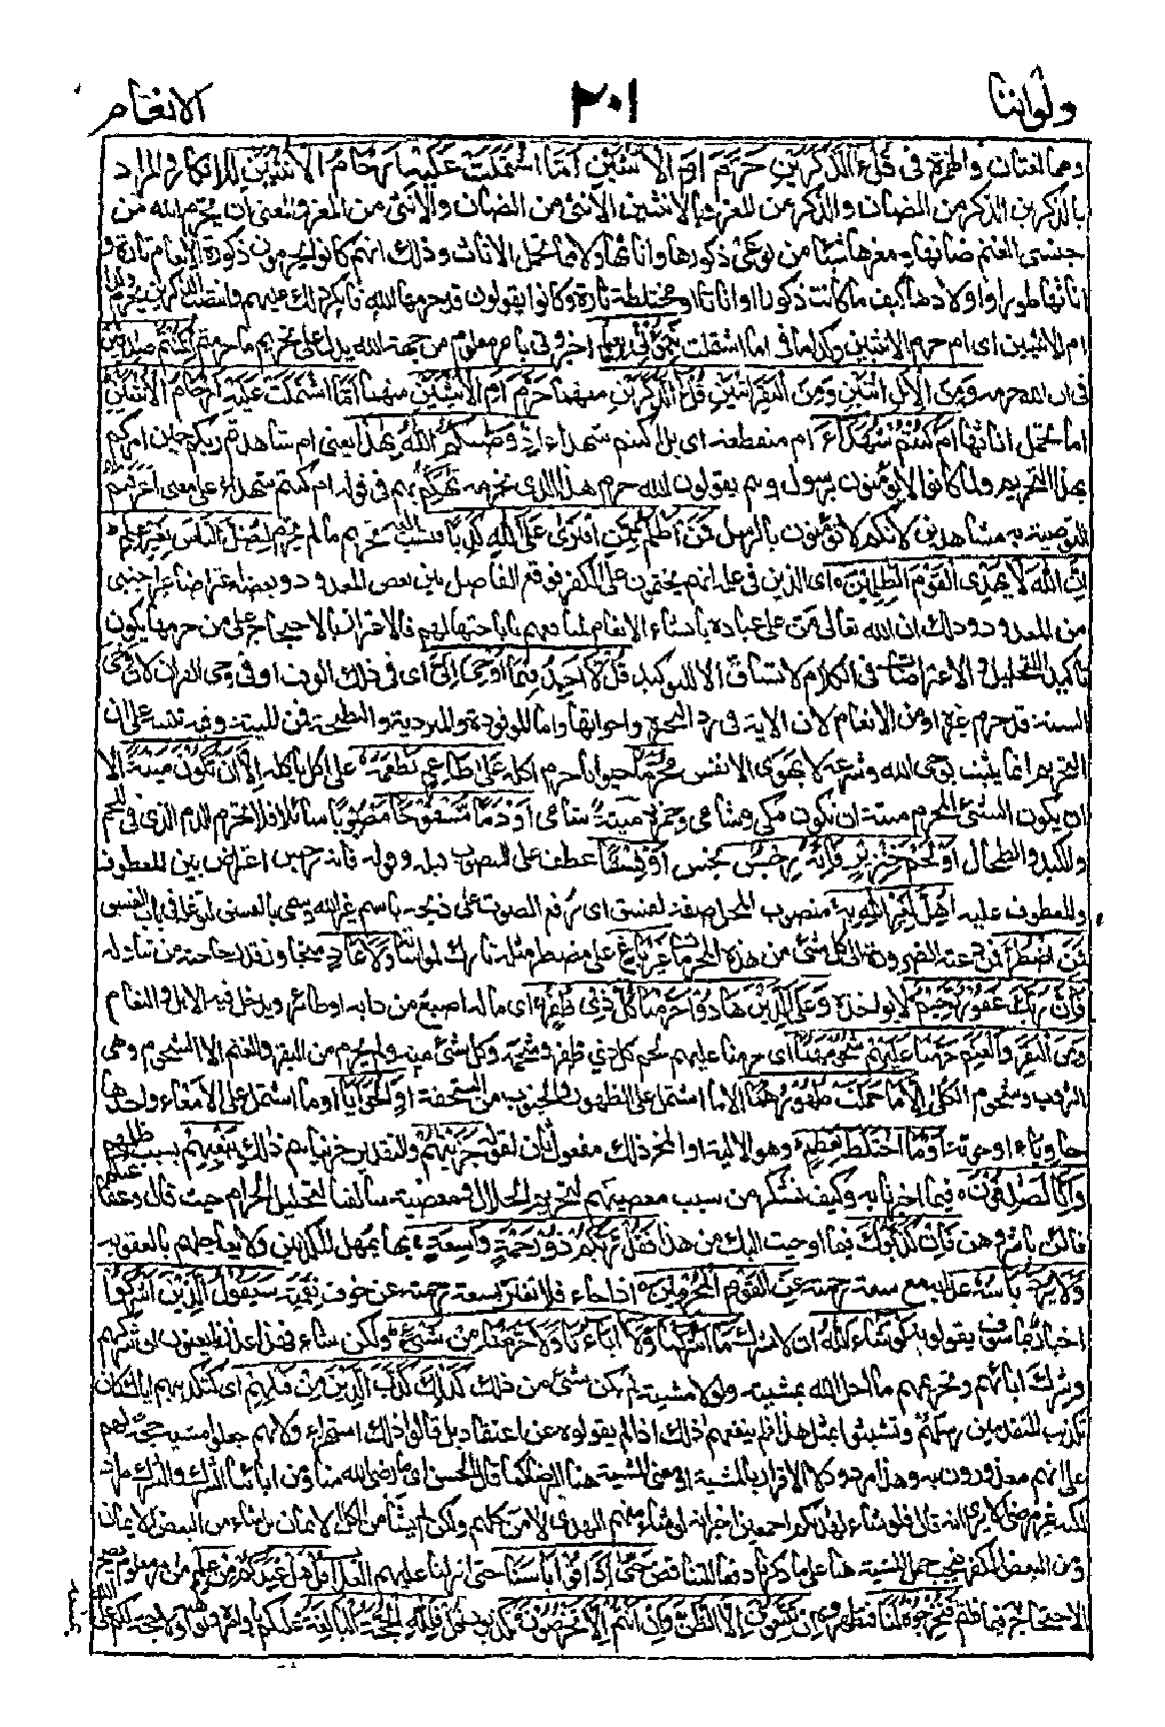 ولواننا
٢٠١
الانعام
وهما لغتان والهمزة فى قل ءالذكرين حرم ام الانثيين اما اشتملت عليه ارحام الانثيين للانكار والمراد
بالذكرين الذكر من الضان والذكر من المعز وبالانثيين الانثى من الضان والانثى من المعز والمعنى ان يحرم الله من
جنسى الغنم ضانها ومعزها شيئا من نوعى ذكورها واناثها ولا ما تحمل الاناث وذلك انهم كانوا يحرمون ذكورة الانعام تارة و
اناثها طورا واولادها كيف ما كانت ذكورا او اناثا او مختلطة تارة وكانوا يقولون قد حرمها الله فانكر ذلك عليهم وانتصب الذكرين بحرم وكذا
ام الانثيين اى ام حرم الانثيين وكذا ما فى اما اشتملت نبئونى بعلم اخبرونى بامر معلوم من جهة الله يدل على تحريم ما حرمتم ان كنتم صدقين
فى ان الله حرمه ومن الابل اثنين ومن البقر اثنين قل ءالذكرين منهما حرم ام الانثيين منهما اما اشتملت عليه ارحام الانثيين
اما تحمل اناثها ام كنتم شهداء ام منقطعة اى بل اكنتم شهداء اذ وصىكم الله بهذا يعنى ام شاهدتم ربكم حين امركم
بهذا التحريم ولما كانوا لا يؤمنون برسول وهم يقولون الله حرم هذا الذى نحرمه تهكم بهم فى قوله ام كنتم شهداء على معنى اعرفتم
التوصية به مشاهدين لانكم لا تؤمنون بالرسل فمن اظلم ممن افترى على الله كذبا فنسب اليه تحريم ما لم يحرم ليضل الناس بغير علم
ان الله لا يهدى القوم الظلمين اى الذين فى علمه انهم يختمون على الكفر ووقع الفاصل بين بعض المعدود وبعضه اعتراضا غير اجنبى
من المعدود وذلك ان الله تعالى من على عباده بانشاء الانعام لمنافعهم وباباحتها لهم فالاعتراض بالاحتجاج على من حرمها يكون
تاكيدا للتحليل والاعتراضات فى الكلام لا تساق الا للتوكيد قل لا اجد فيما اوحى الى اى فى ذلك الوقت او فى وحى القران لان وحى
السنة قد حرم غيره او من الانعام لان الاية فى رد البحيرة واخواتها واما الموقوذة والمتردية والنطيحة فمن الميتة وفيه تنبيه على ان
التحريم انما يثبت بوحى الله وشرعه لا بهوى الانفس محرما حيوانا حرم اكله على طاعم يطعمه على اكل ياكله الا ان يكون ميتة الا
ان يكون الشئ المحرم ميتة ان تكون مكى وشامى وحمزة ميتة شامى او دما مسفوحا مصبوبا سائلا فلا يحرم الدم الذى فى اللحم
والكبد والطحال او لحم خنزير فانه رجس نجس او فسقا عطف على المنصوب قبله وقوله فانه رجس اعتراض بين المعطوف
والمعطوف عليه اهل لغير الله به منصوب المحل صفة لفسق اى رفع الصوت على ذبحه باسم غير الله وسمى بالفسق لتوغله فى باب الفسق
فمن اضطر فمن دعته الضرورة الى اكل شئ من هذه المحرمات غير باغ على مضطر مثله تارك لمواساته ولا عاد متجاوز قدر حاجته من تناوله
فان ربك غفور رحيم لا يؤاخذه وعلى الذين هادوا حرمنا كل ذى ظفر اى ما له اصبع من دابة او طائر ويدخل فيه الابل والنعام
ومن البقر والغنم حرمنا عليهم شحومهما اى حرمنا عليهم لحم كل ذى ظفر وشحمه وكل شئ منه ولم يحرم من البقر والغنم الا الشحوم وهى
الثروب وشحوم الكلى الا ما حملت ظهورهما الا ما اشتمل على الظهور والجنوب من السحفة او الحوايا او ما اشتمل على الامعاء واحدها
حاوياء او حوية او ما اختلط بعظم وهو الالية او المخ ذلك مفعول ثان لقوله جزينهم والتقدير جزيناهم ذلك ببغيهم بسبب ظلمهم
وانا لصدقون فيما اخبرنا به وكيف نشكر من سبب معصيتهم لتحريم الحلال ومعصية سالفنا لتحليل الحرام حيث قال وعفا عنكم
فالان باشروهن فان كذبوك فيما اوحيت اليك من هذا فقل ربكم ذو رحمة واسعة بها يمهل المكذبين ولا يعاجلهم بالعقوبة
ولا يرد باسه عذابه مع سعة رحمته عن القوم المجرمين اذا جاء فلا تغتر بسعة رحمته عن خوف نقمته سيقول الذين اشركوا
اخبار بما سوف يقولونه لو شاء الله ان لا نشرك ما اشركنا ولا اباءنا ولا حرمنا من شئ ولكن شاء فهذا عذرنا يعنون ان شركهم
وشرك ابائهم وتحريمهم ما احل الله بمشيته ولولا مشيته لم يكن شئ من ذلك كذلك كذب الذين من قبلهم اى كتكذيبهم اياك كان
تكذيب المتقدمين رسلهم وتشبثوا بمثل هذا فلم ينفعهم ذلك اذ لم يقولوه عن اعتقاد بل قالوا ذلك استهزاء ولانهم جعلوا مشيته حجة لهم
على انهم معذورون به وهذا مردود لا الاقرار بالمشية او معنى المشية هنا الرضا كما قال الحسن اى رضى الله منا ومن ابائنا الشرك والشرك مراد
لكنه غير مرضى الا يرى انه قال فلو شاء لهدىكم اجمعين اخبر انه لو شاء منهم الهدى لامن كلهم ولكن لم يشأ من الكل الايمان بل شاء من البعض الايمان
ومن البعض الكفر فيجب حمل المشية هنا على ما ذكرنا دفعا للتناقض حتى ذاقوا باسنا حتى انزلنا عليهم العذاب قل هل عندكم من علم من امر معلوم يصح
الاحتجاج به فيما قلتم فتخرجوه لنا فتظهروه ان تتبعون الا الظن وان انتم الا تخرصون تكذبون قل فلله الحجة البالغة عليكم باوامره ونواهيه ولا حجة لكم على الله